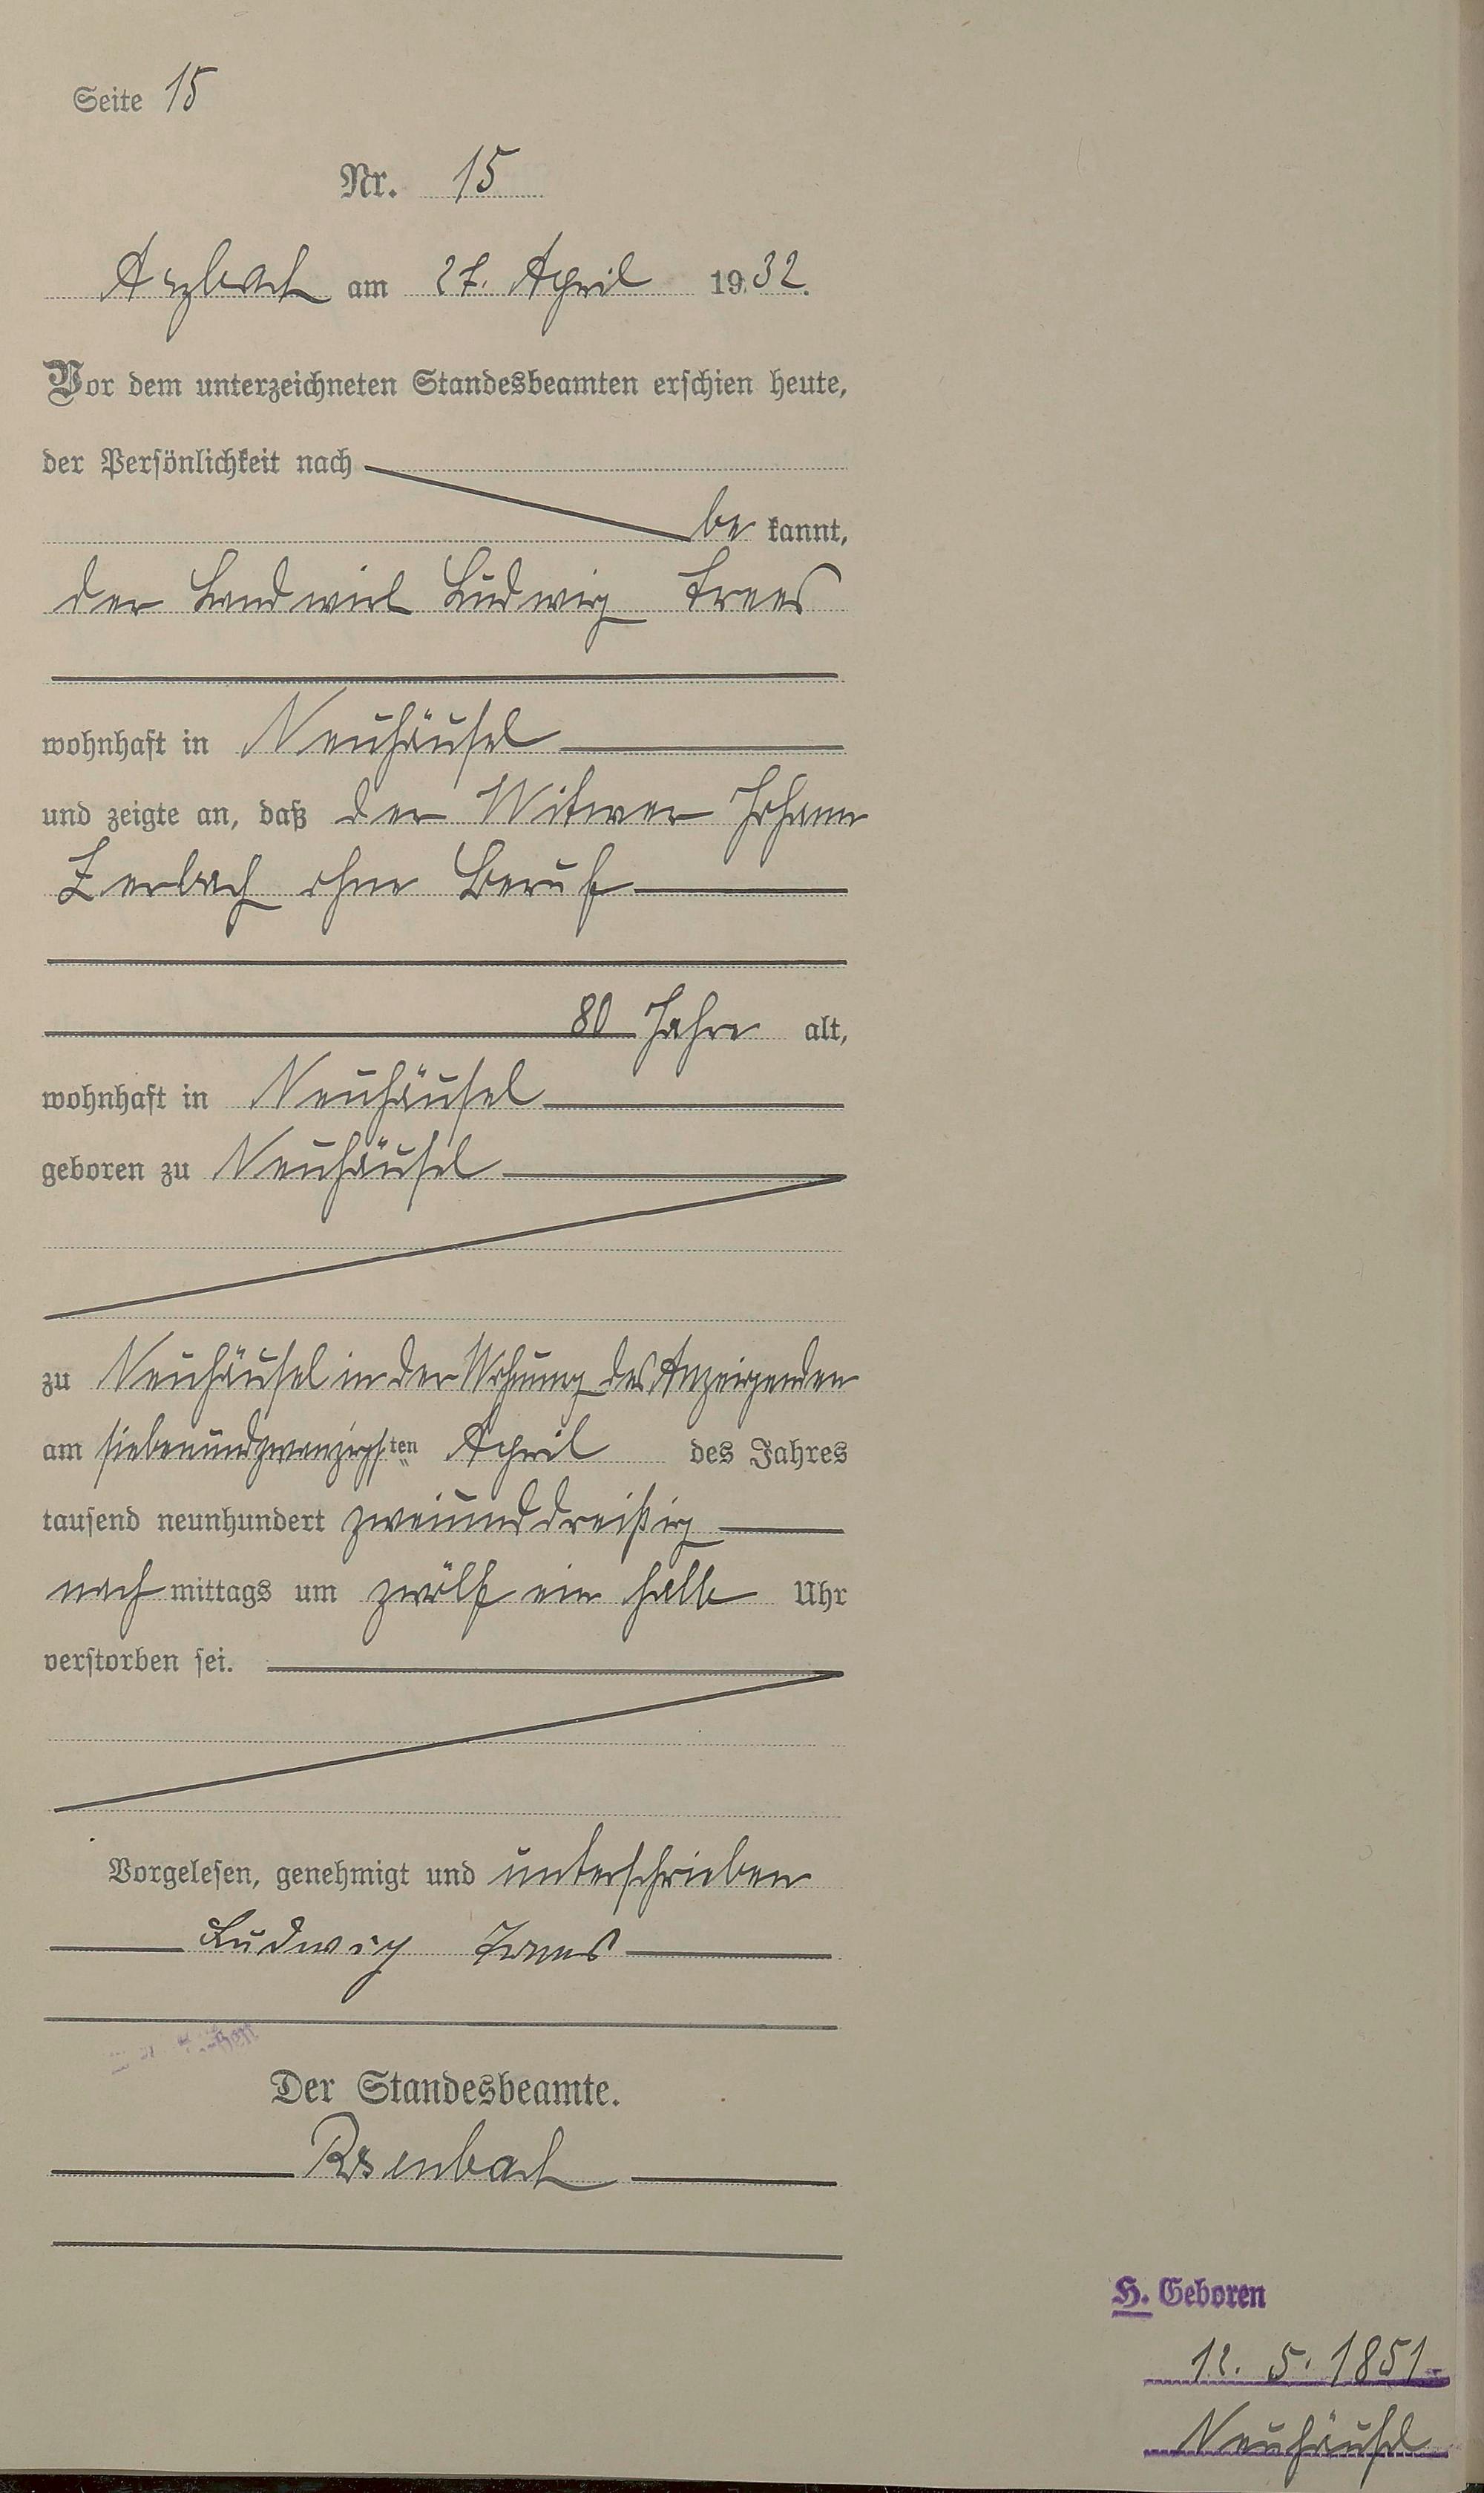 Seite 15
Nr. 15
Arzbach am 27. April 1932.
Vor dem unterzeichneten Standesbeamten erschien heute,
der Persönlichkeit nach
be kannt,
der Landwirt Ludwig Trees
wohnhaft in Neuhäusel
und zeigte an, daß der Witwer Johann
Zerbach ohne Beruf
80 Jahre alt,
wohnhaft in Neuhäusel
geboren zu Neuhäusel
zu Neuhäusel in der Wohnung des Anzeigenden
am siebenundzwanzigsten April des Jahres
tausend neunhundert zweiunddreißig
nachmittags um zwölf ein halb Uhr
verstorben sei.
Vorgelesen, genehmigt und unterschrieben
Ludwig Trees
Der Standesbeamte.
Rosenbach
H. Geboren
12. 5. 1851
Neuhäusel